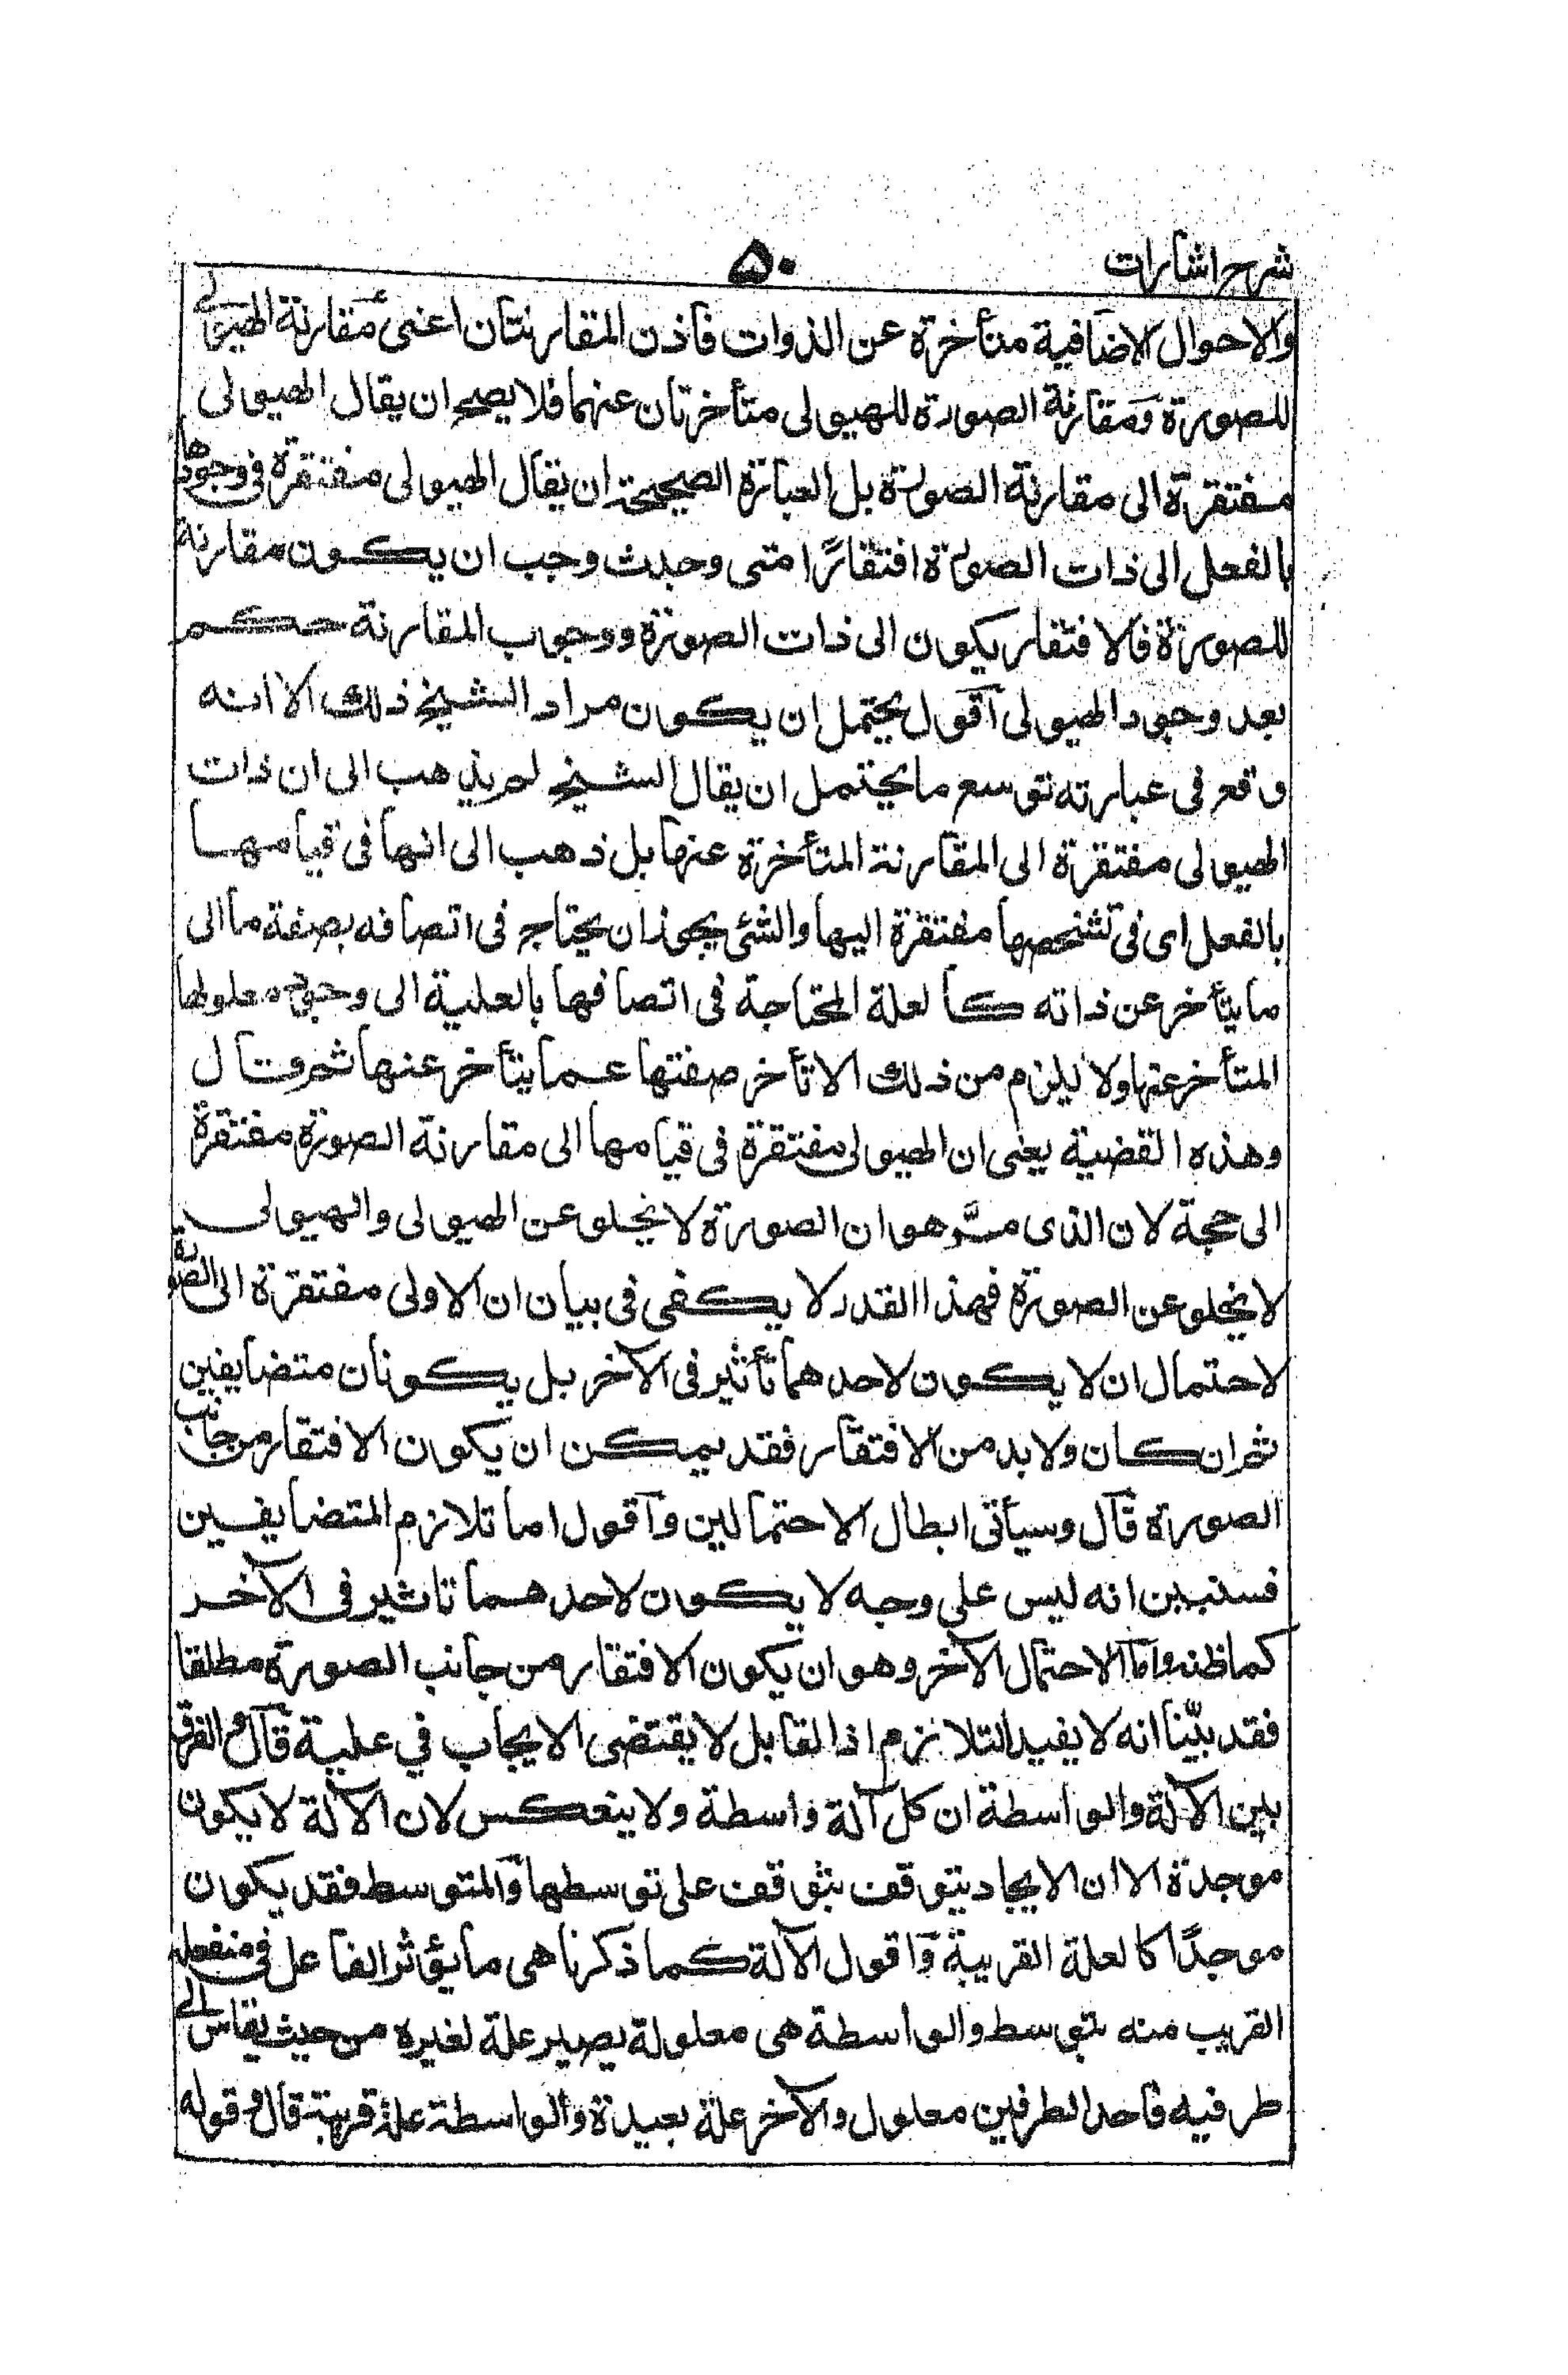 شرح اشارات
۵۰
والاحوال الاضافية متأخرة عن الذوات فاذن المقارنتان اعنى مقارنة الهيولى
للصورة ومقارنة الصورة للهيولى متأخرتان عنهما فلا يصح ان يقال الهيولى
مفتقرة الى مقارنة الصورة بل العبارة الصحيحة ان يقال الهيولى مفتقرة فى وجودها
بالفعل الى ذات الصورة افتقارًا متى وجدت وجب ان يكون مقارنة
للصورة فالافتقار يكون الى ذات الصورة ووجوب المقارنة حكم
بعد وجود الهيولى آقول يحتمل ان يكون مراد الشيخ ذلك الا انه
وقع فى عبارته توسع ما يحتمل ان يقال الشيخ لم يذهب الى ان ذات
الهيولى مفتقرة الى المقارنة المتأخرة عنها بل ذهب الى انها فى قيامها
بالفعل اى فى تشخصها مفتقرة اليها والشئ يجوز ان يحتاج فى اتصافه بصفة ما الى
ما يتأخر عن ذاته كالعلة المحتاجة فى اتصافها بالعلية الى وجود معلولها
المتأخر عنها ولا يلزم من ذلك الا تأخر صفتها عما يتأخر عنها ثم قال
وهذه القضية يعنى ان الهيولى مفتقرة فى قيامها الى مقارنة الصورة مفتقرة
الى حجة لان الذى مرّ هو ان الصورة لا يخلو عن الهيولى والهيولى
لا يخلو عن الصورة فهذا القدر لا يكفى فى بيان ان الاولى مفتقرة الى الصورة
لاحتمال ان لا يكون لاحدهما تأثير فى الآخر بل يكونان متضايفين
ثم ان كان ولا بد من الافتقار فقد يمكن ان يكون الافتقار من جانب
الصورة قآل وسيأتى ابطال الاحتمالين وآقول اما تلازم المتضايفين
فسنبين انه ليس على وجه لا يكون لاحدهما تاثير فى الآخر
كما ظنه واما الاحتمال الآخر وهو ان يكون الافتقار من جانب الصورة مطلقا
فقد بيّنا انه لا يفيد التلازم اذ القابل لا يقتضى الايجاب في علية قآل والفرق
بين الآلة والواسطة ان كل آلة واسطة ولا ينعكس لان الآلة لا يكون
موجدة الا ان الايجاد يتوقف يتوقف على توسطها والمتوسط فقد يكون
موجدًا كالعلة القريبة وآقول الآلة كما ذكرنا هى ما يؤثر الفاعل فى منفعله
القريب منه بتوسط والواسطة هى معلولة يصير علة لغيره من حيث يقاس الى
طرفيه فاحد الطرفين معلول والآخر علة بعيدة والواسطة علة قريبة قال وقوله